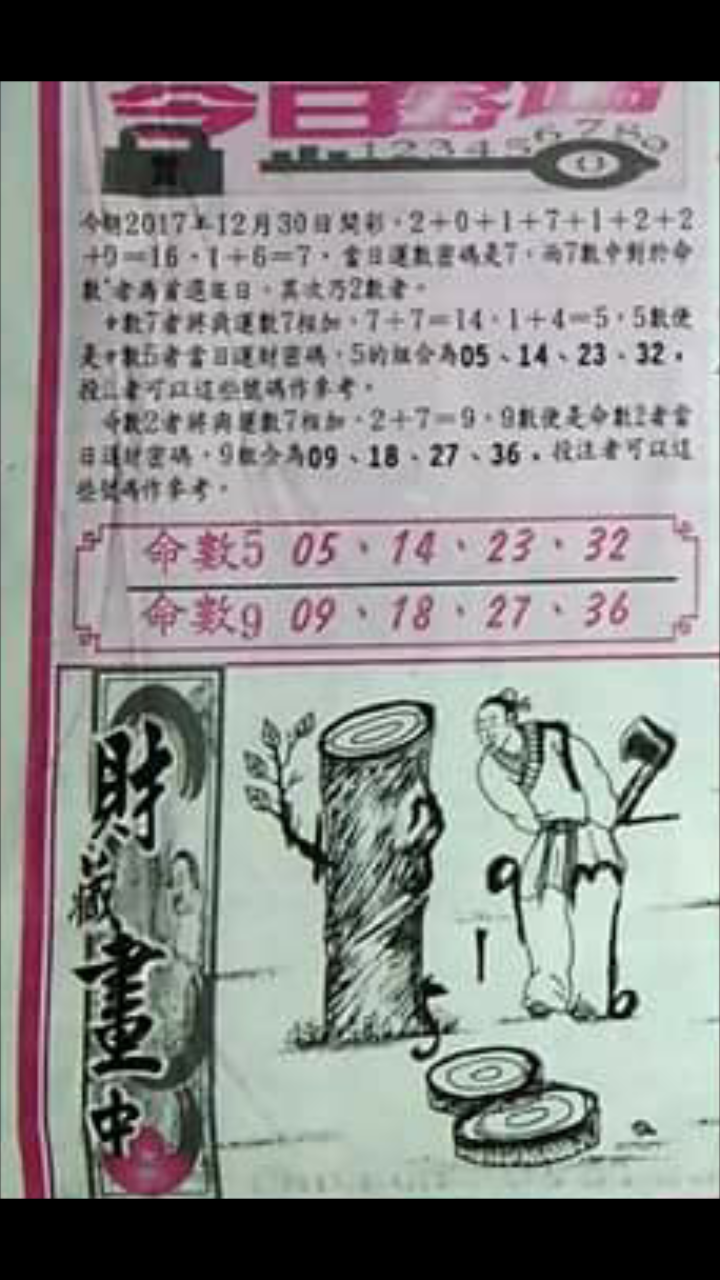 今日
1 2 3 4 5 6 7 8 9
0
今期2017年12月30日開彩,2+0+1+7+1+2+2
+0=16,1+6=7,當日運數密碼是7,而7數中對於命
數 者為首選旺日,其次乃2數者。
數7者將與運數7相加,7+7=14,1+4=5,5數便
是 數5者當日運財密碼,5的組合為05、14、23、32,
投注者可以這些號碼作參考。
命數2者將與運數7相加,2+7=9,9數便是命數2者當
日運財密碼,9組合為09、18、27、36,投注者可以這
些號碼作參考。
命數5 05、14、23、32
命數9 09、18、27、36
財藏畫中
9
1
5
6